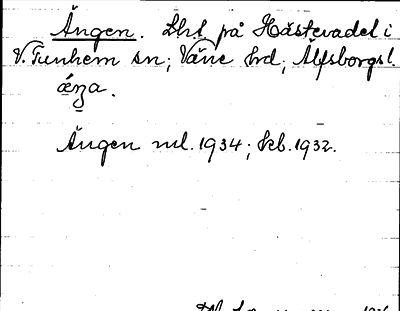 Ängen. Lht på Hästevadet i
V. Tunhem sn; Väne hd; Älfsborgs l.
Ängen ml. 1934; kb. 1932.